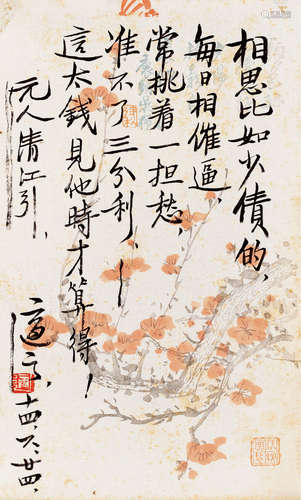 相思比如少債的，
每日相催逼，
常挑着一担愁，
准不了三分利，——
這本錢見他時才算得！
元人清江引，
適之，
十四、六、廿四